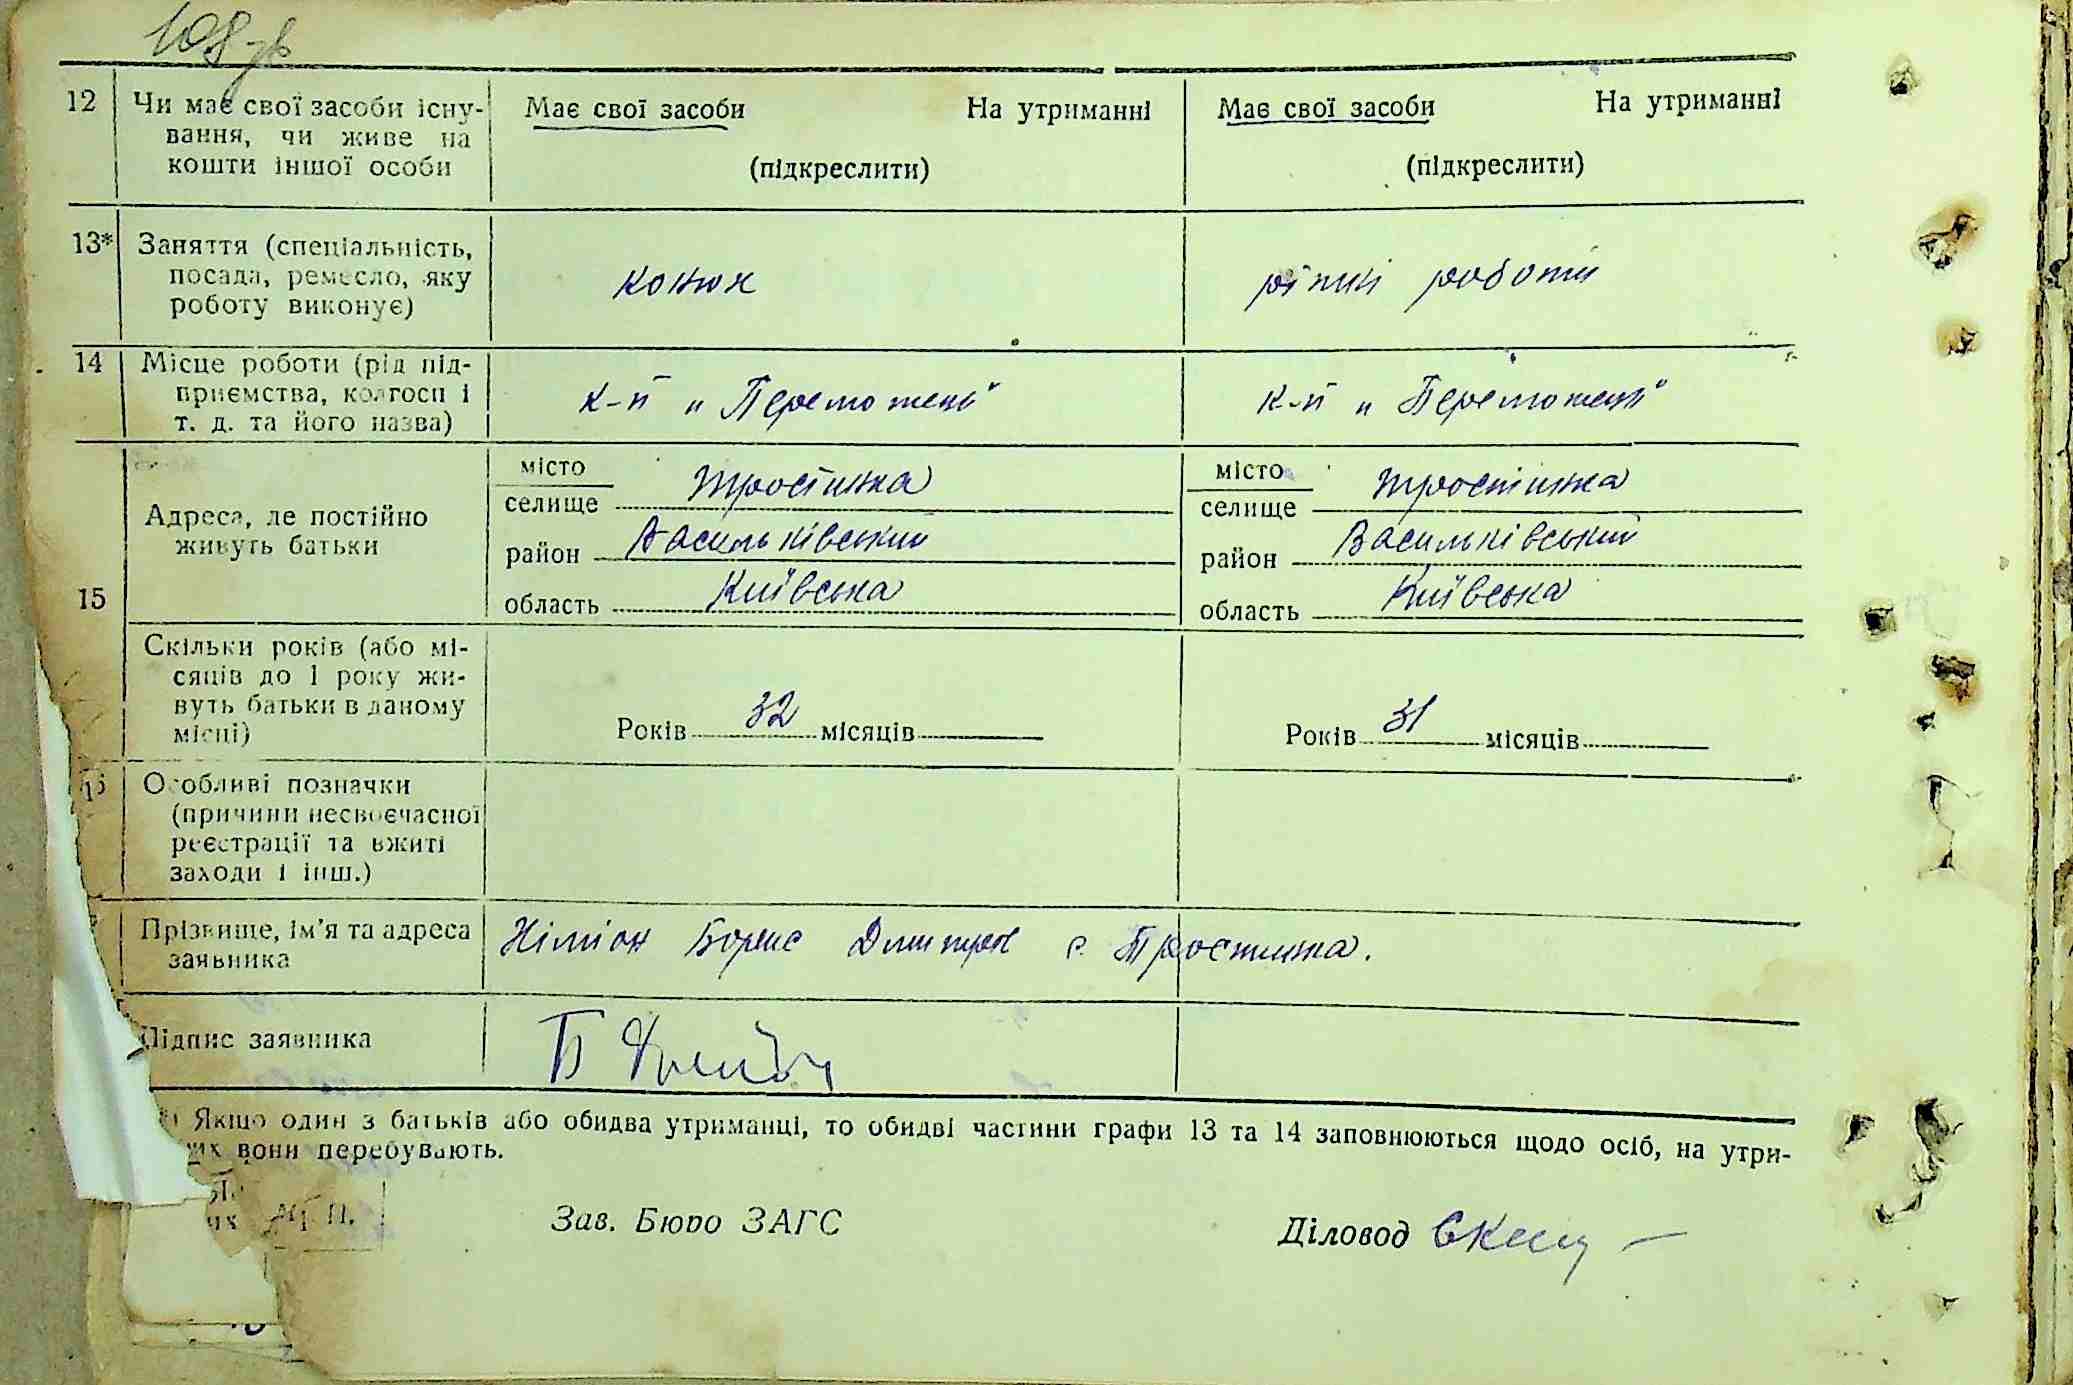 108 зв
12 Чи має свої засоби існу-
вання, чи живе на
кошти іншої особи
Має свої засоби На утриманні
(підкреслити)
Має свої засоби На утриманні
(підкреслити)
13* Заняття (спеціальність,
посада, ремесло, яку
роботу виконує)
конюх
різни роботи
14 Місце роботи (рід під-
приємства, колгосп і
т. д. та його назва)
к-п „Переможець"
к-п „Переможець"
15
Адреса, де постійно
живуть батьки
місто
селище Тростинка
район Васильківський
область Київська
місто
селище Тростінка
район Васильківський
область Київська
Скільки років (або мі-
сяців до 1 року жи-
вуть батьки в даному
місці)
Років 32 місяців
Років 31 місяців
Особливі позначки
(причини несвоєчасної
реєстрації та вжиті
заходи і інш.)
Прізвище, ім'я та адреса
заявника
Борис Дмитров с. Тростинка.
Підпис заявника
Якщо один з батьків або обидва утриманці, то обидві частини графи 13 та 14 заповнюються щодо осіб, на утри-
вони перебувають.
М. П.
Зав. Бюро ЗАГС
Діловод